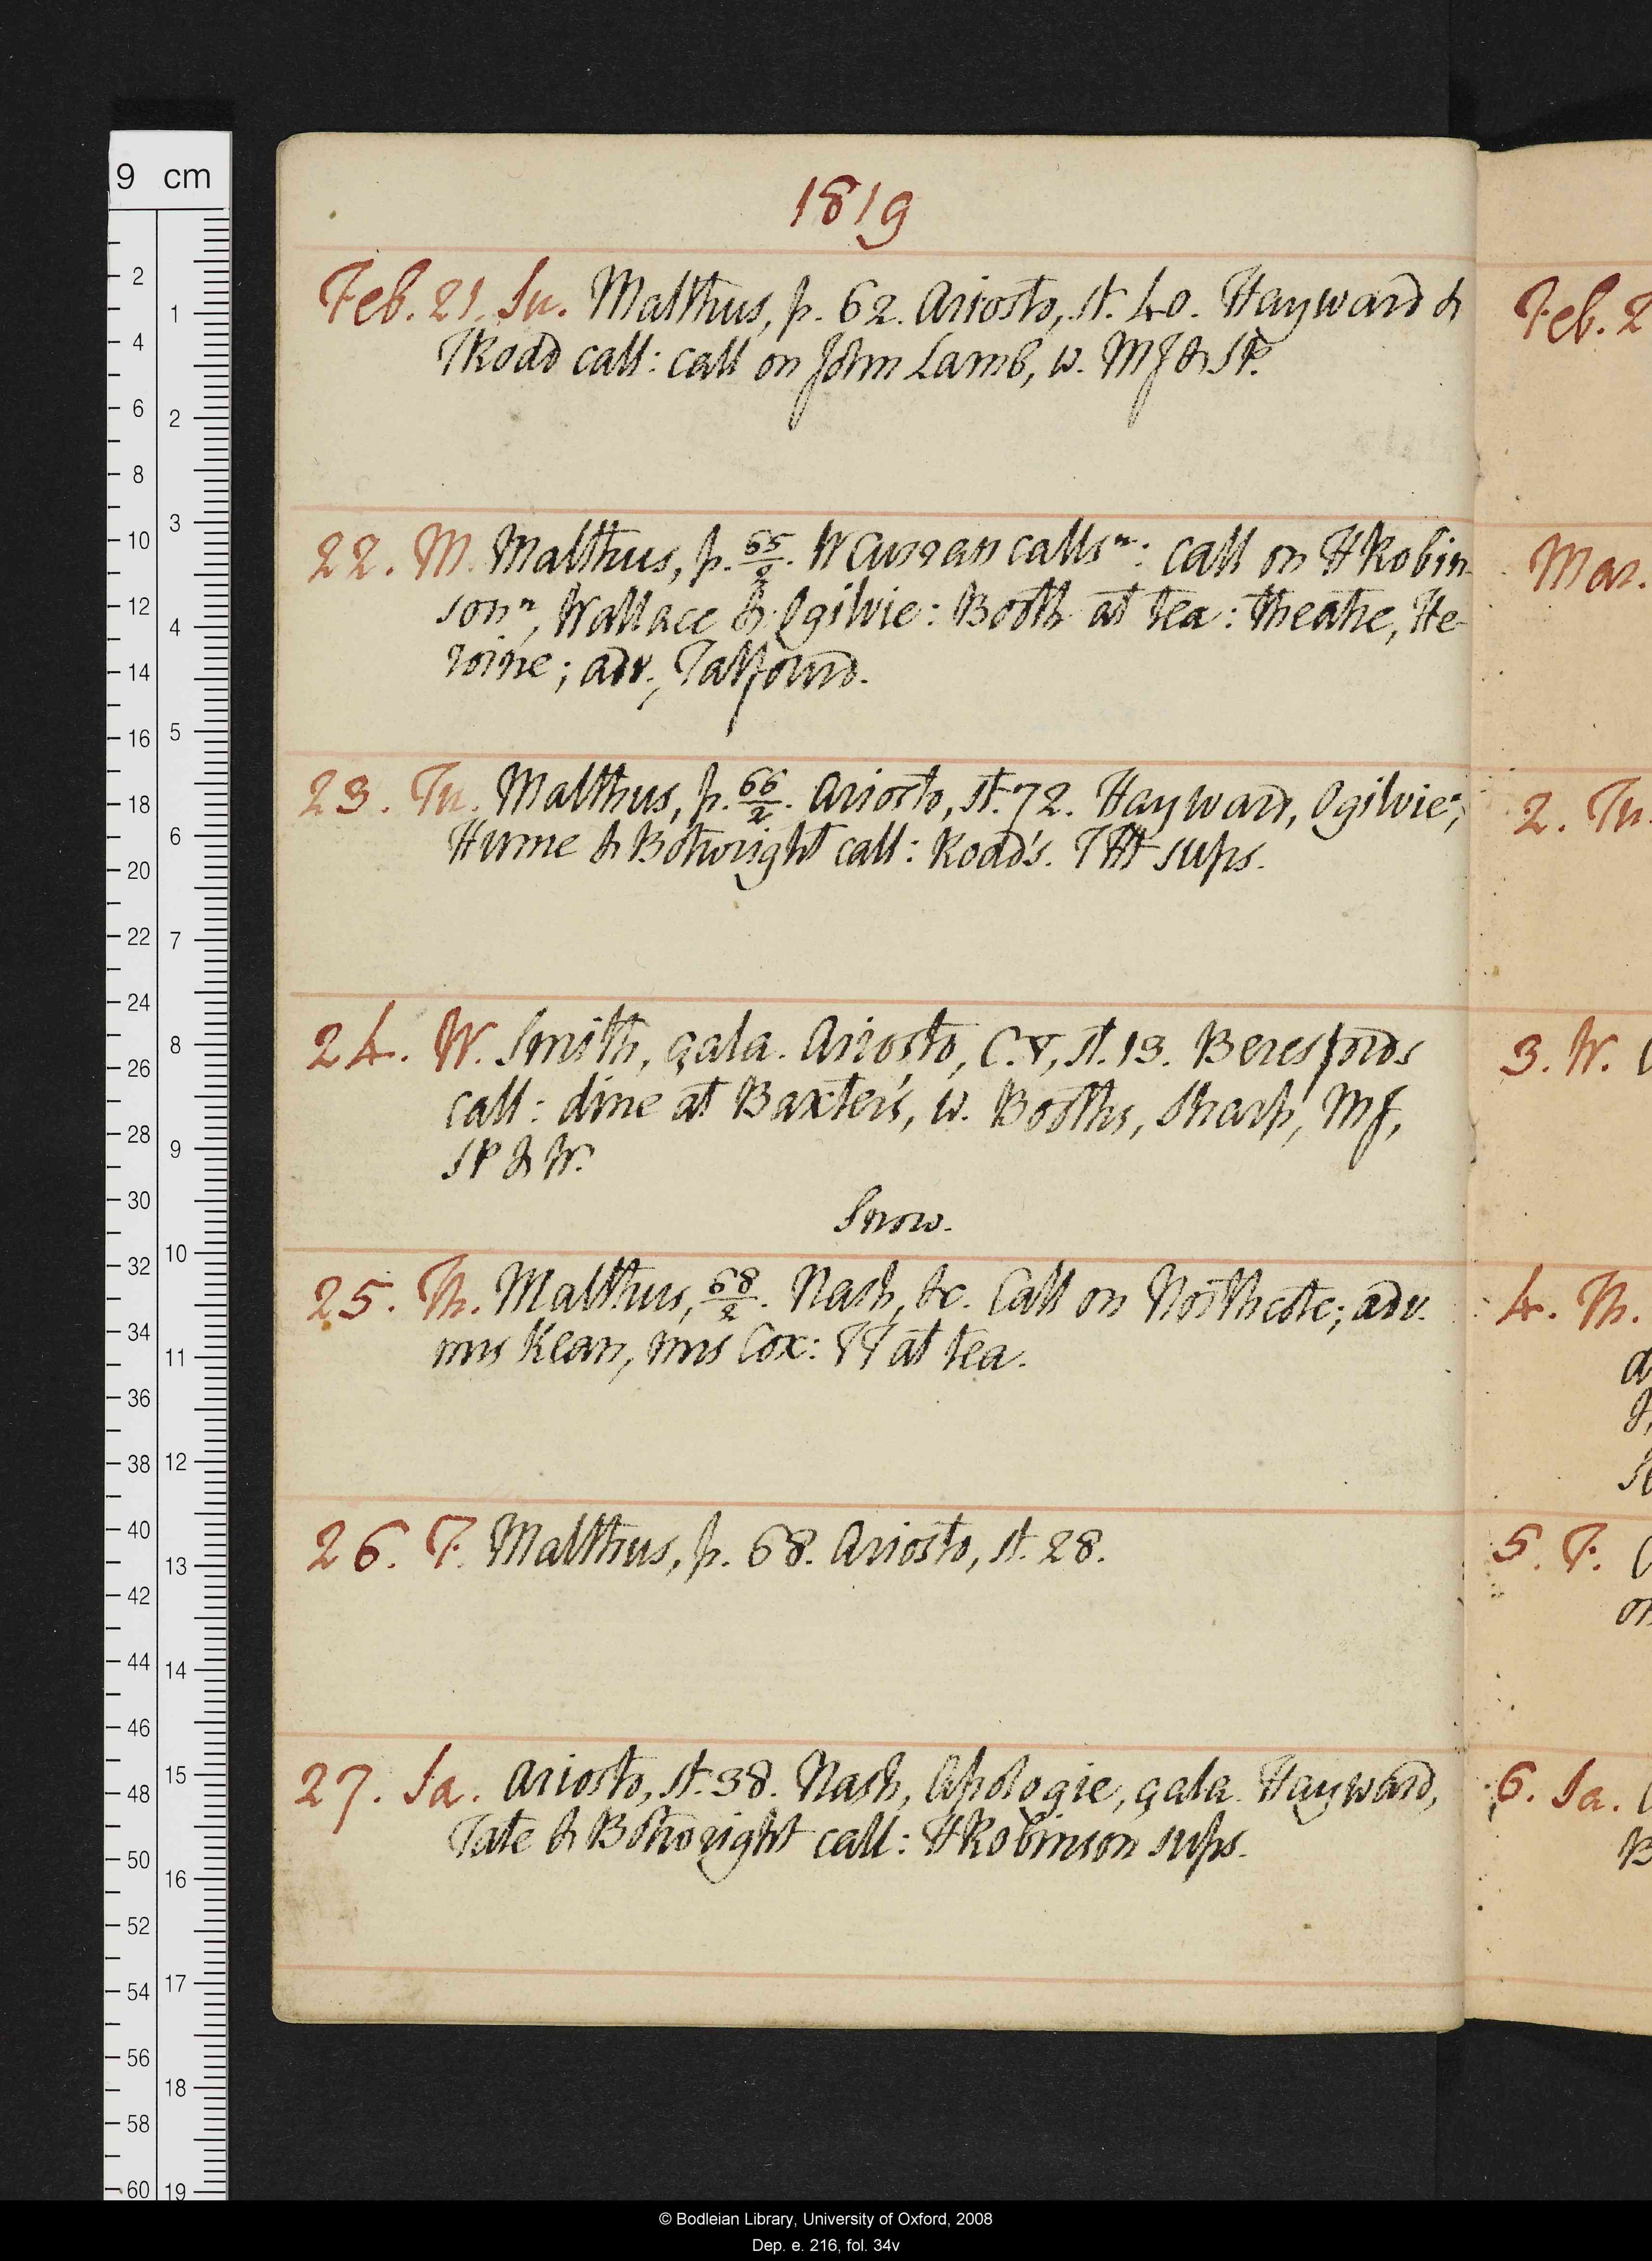 1819
Feb. 21. Su. Malthus, p. 62. Ariosto, st. 40. Hayward &
T Road call: call on John Lamb, w. MJ & SP.
22. M. Malthus, p. 65/2. W Curran calls n: call on H Robin-
son n, Wallace & Ogilvie: Booth at tea: theatre, He-
roine; adv. Talfourd.
23. Tu. Malthus, p. 66/2. Ariosto, st. 72. Hayward, Ogilvie n,
Hume & Bothwright call: Road's. TH sups.
24. W. Smith, çala. Ariosto, C. , st. 13. Beresfords
call: dine at Baxter's, w. Booths, Sharp, MJ,
SP & W.
Snow.
25. Th. Malthus, 68/2. Nash, &c. Call on Northcote; adv.
mrs Kean, mrs Cox: TT at tea.
26. F. Malthus, p. 68. Ariosto, st. 28.
27. Sa. Ariosto, st. 38. Nash, Apologie, çala. Hayward,
Tate & Bothwright call: H Robinson sups.
Feb. 2
Mar.
2. Tu.
3. W.
4. Th.
5. F.
on
6. Sa.
B
9 cm
2 4 6 8 10 12 14 16 18 20 22 24 26 28 30 32 34 36 38 40 42 44 46 48 50 52 54 56 58 60
1 2 3 4 5 6 7 8 9 10 11 12 13 14 15 16 17 18 19
© Bodleian Library, University of Oxford, 2008
Dep. e. 216, fol. 34v